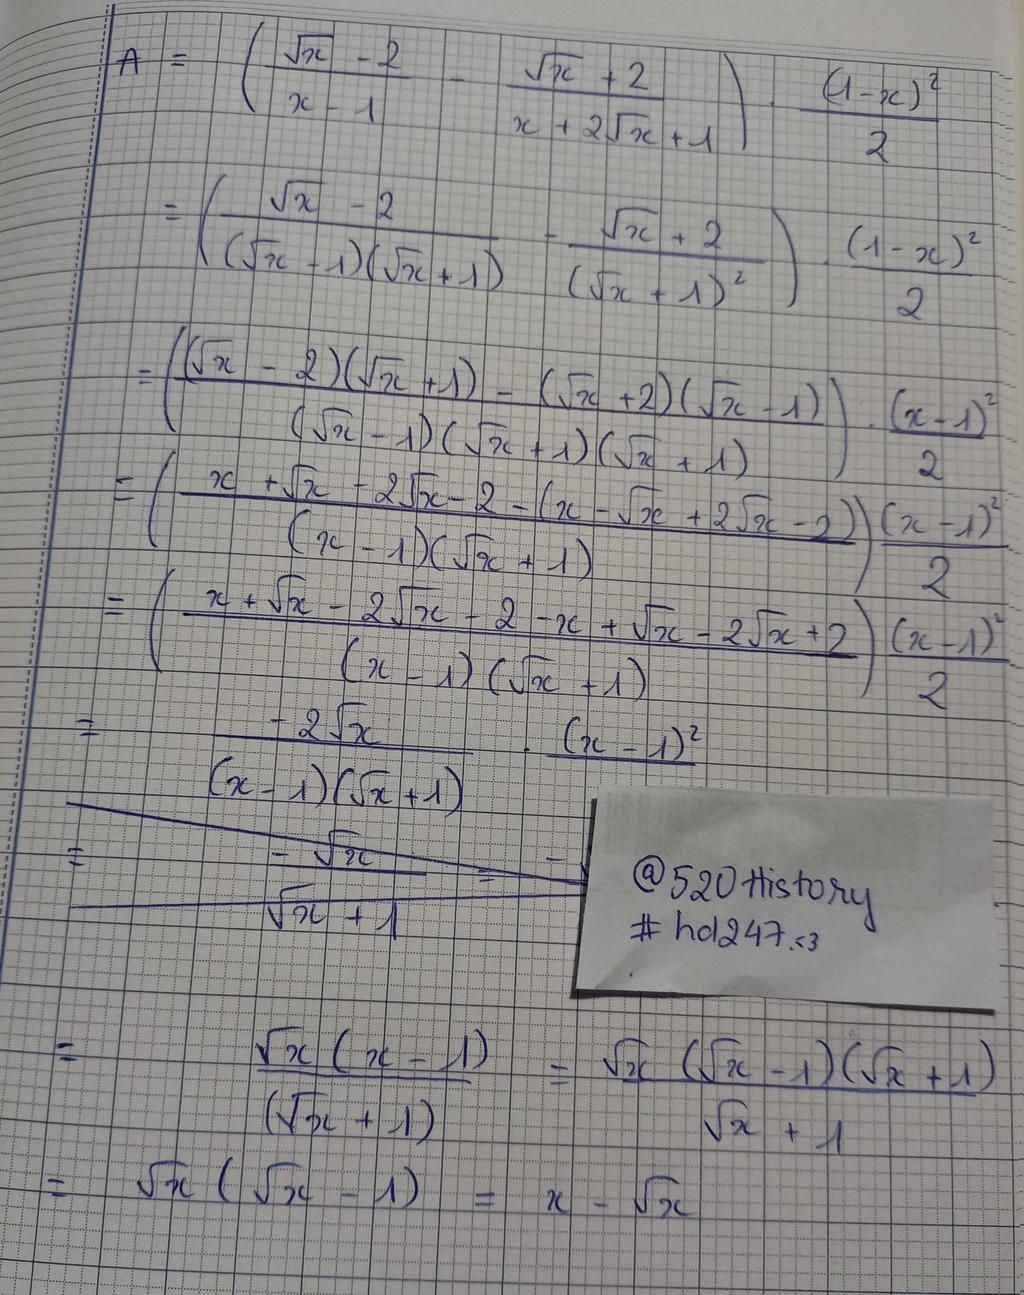 A = ( (√x - 2)/(x - 1) - (√x + 2)/(x + 2√x + 1) ) . (1-x)²/2
= ( (√x - 2)/((√x - 1)(√x + 1)) - (√x + 2)/(√x + 1)² ) . (1-x)²/2
= ( ((√x - 2)(√x + 1) - (√x + 2)(√x - 1))/((√x - 1)(√x + 1)(√x + 1)) ) . (x-1)²/2
= ( (x + √x - 2√x - 2 - (x - √x + 2√x - 2))/((x - 1)(√x + 1)) ) (x-1)²/2
= ( (x + √x - 2√x - 2 - x + √x - 2√x + 2)/((x - 1)(√x + 1)) ) (x-1)²/2
= -2√x/((x - 1)(√x + 1)) . (x - 1)²
= -√x/(√x + 1) = -
@520History
#hd247.<3
= √x (x - 1)/(√x + 1) = √x (√x - 1)(√x + 1)/(√x + 1)
= √x (√x - 1) = x - √x